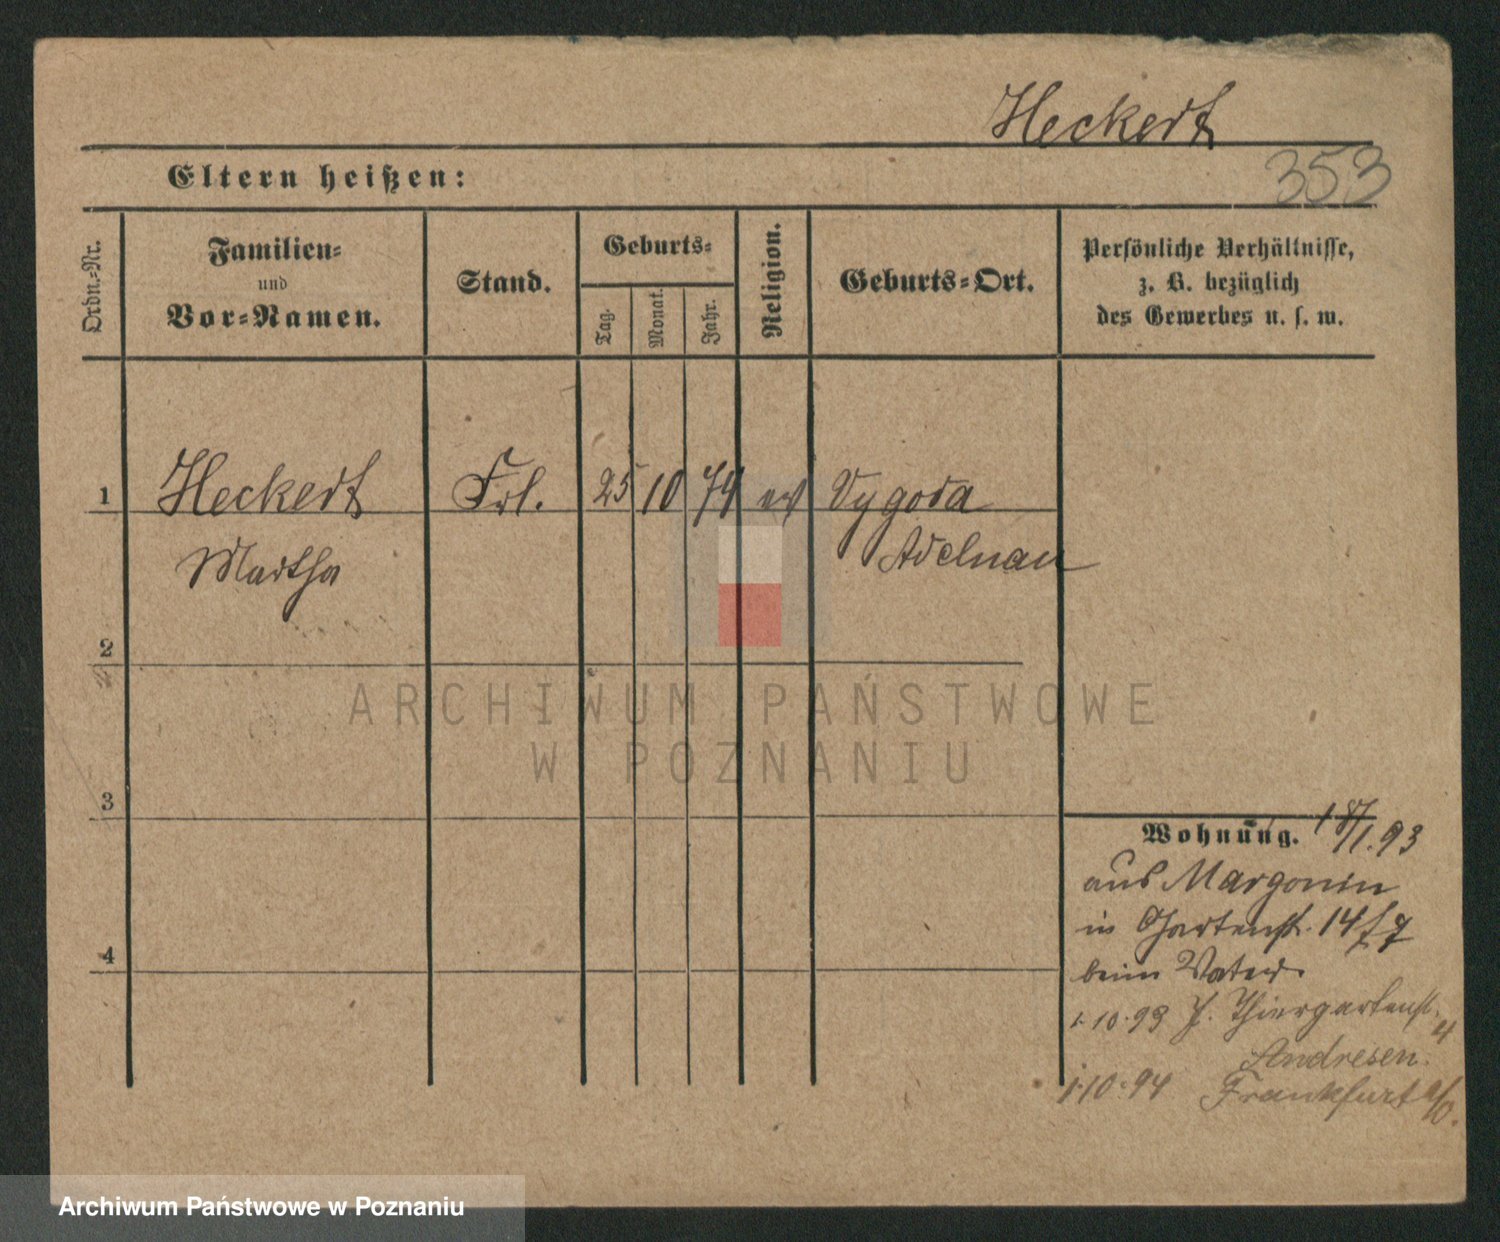 Heckert
353
Eltern heißen:
Ordn.-Nr.
Familien-
und
Vor-Namen.
Stand.
Geburts-
Tag.
Monat.
Jahr.
Religion.
Geburts-Ort.
Persönliche Verhältnisse,
z. B. bezüglich
des Gewerbes u. s. w.
1 Heckert Frl. 25 10 74 ev Wygoda
Martha Adelnau
2
3
4
Wohnung. 18/1.93
aus Margonin
in Gartenst. 14
beim Vater.
1.10.93 Thiergartenst. 4
Andresen.
1.10.94 Frankfurt a/O.
ARCHIWUM PAŃSTWOWE
W POZNANIU
Archiwum Państwowe w Poznaniu